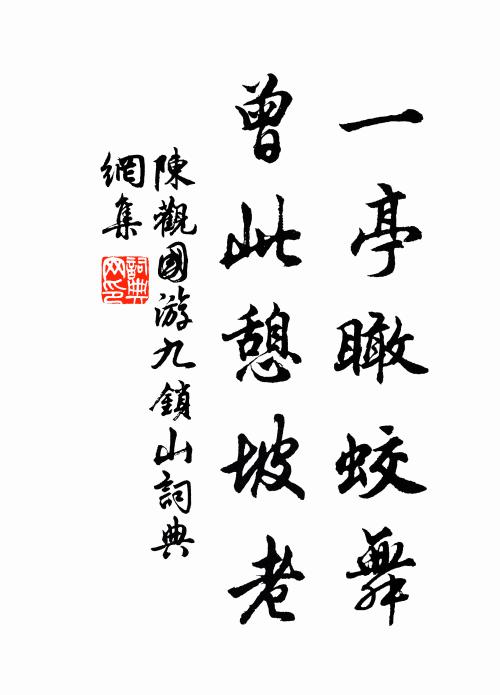 一亭瞰蛟舞
曾此憩坡老
陳觀國游九鎖山詞典
網集
詞典網印